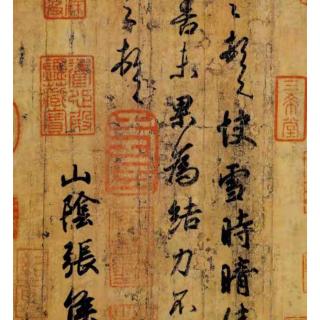 之頓首快雪時晴佳
善未果為結力不
之頓首
山陰張侯
三希堂